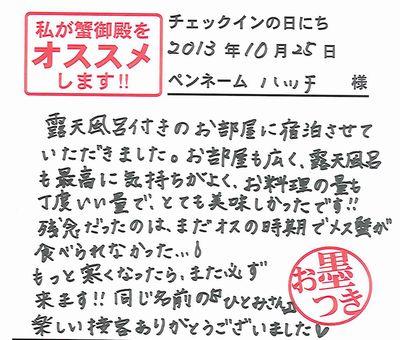 私が蟹御殿を
オススメ
します!!
チェックインの日にち
2013 年 10 月 25 日
ペンネーム ハッチ 様
露天風呂付きのお部屋に宿泊させて
いただきました。お部屋も広く、露天風呂
も最高に気持ちがよく、お料理の量も
丁度いい量で、とても美味しかったです!!
残念だったのは、まだオスの時期でメス蟹が
食べられなかった…
もっと寒くなったら、また必ず
来ます!! 同じ名前の『ひとみさん』
楽しい接客ありがとうございました♡
お墨つき